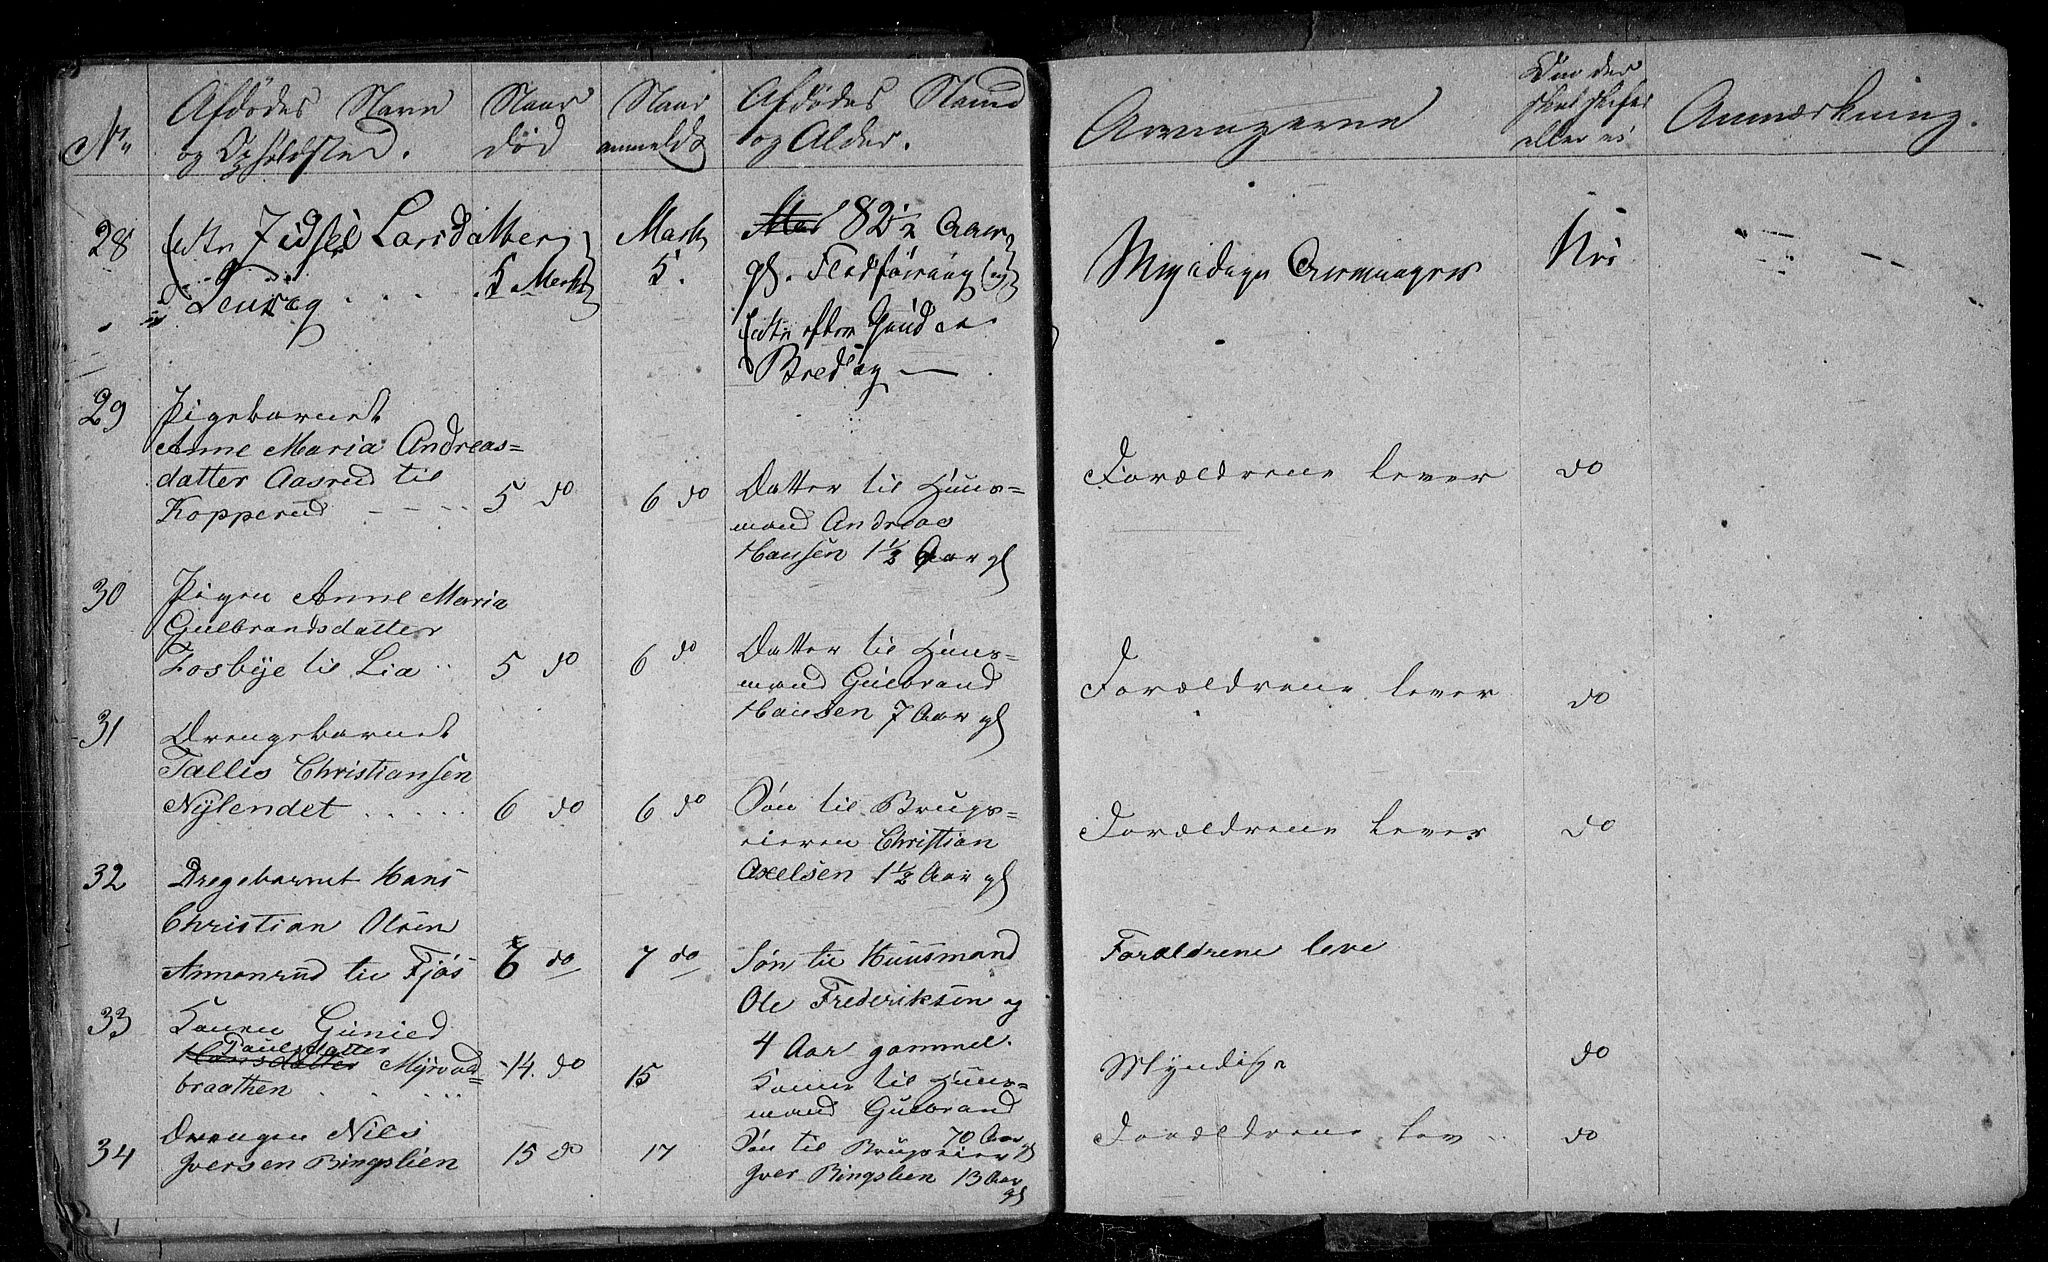 No
Afdødes Navn
og Opholdsted.
Naar
død
Naar
anmeldt
Afdødes Stand
og Alder.
Arvingerne
Om der
skal skiftes
eller ei
Anmærkning.
28
Enken Sidsel Larsdatter
5 Marts
Marts
5.
82 1/2 Aar
gl. Flodføring
Enke efter
Myndige Arvinger
Nei
29
Pigebarnet
Anne Maria Andreas=
datter Aasrud til
Kopperud
5 do
6 do
Datter til Huus=
mand Andreas
Hansen 1 1/2 Aar gl
Forældrene lever
do
30
Pigen Anne Maria
Gulbrandsdatter
Fosbye til Lia
5 do
6 do
Datter til Huus=
mand Gulbrand
Hansen 7 Aar gl
Forældrene lever
do
31
Drengebarnet
Tallis Christiansen
Nylendet
6 do
6 do
Søn til Brugs=
eieren Christian
Axelsen 1 1/2 Aar gl
Forældrene lever
do
32
Dregebarnet Hans
Christian Olsen
Annonrud til Fjøs
6 do
7 do
Søn til Huusmand
Ole Frederiksen og
4 Aar gammel.
Forældrene leve
33
Konen Gunild
Paulsdatter
Hansdatter Myrvold=
braathen
14. do
15
Kone til Huus=
mand Gulbrand
70 Aar
gl
Myndige
do
34
Drengen Nils
Iversen Bingslien
15 do
17
Søn til Brugseier
Iver Bingslien 13 Aar
gl
Forældrene lev
do